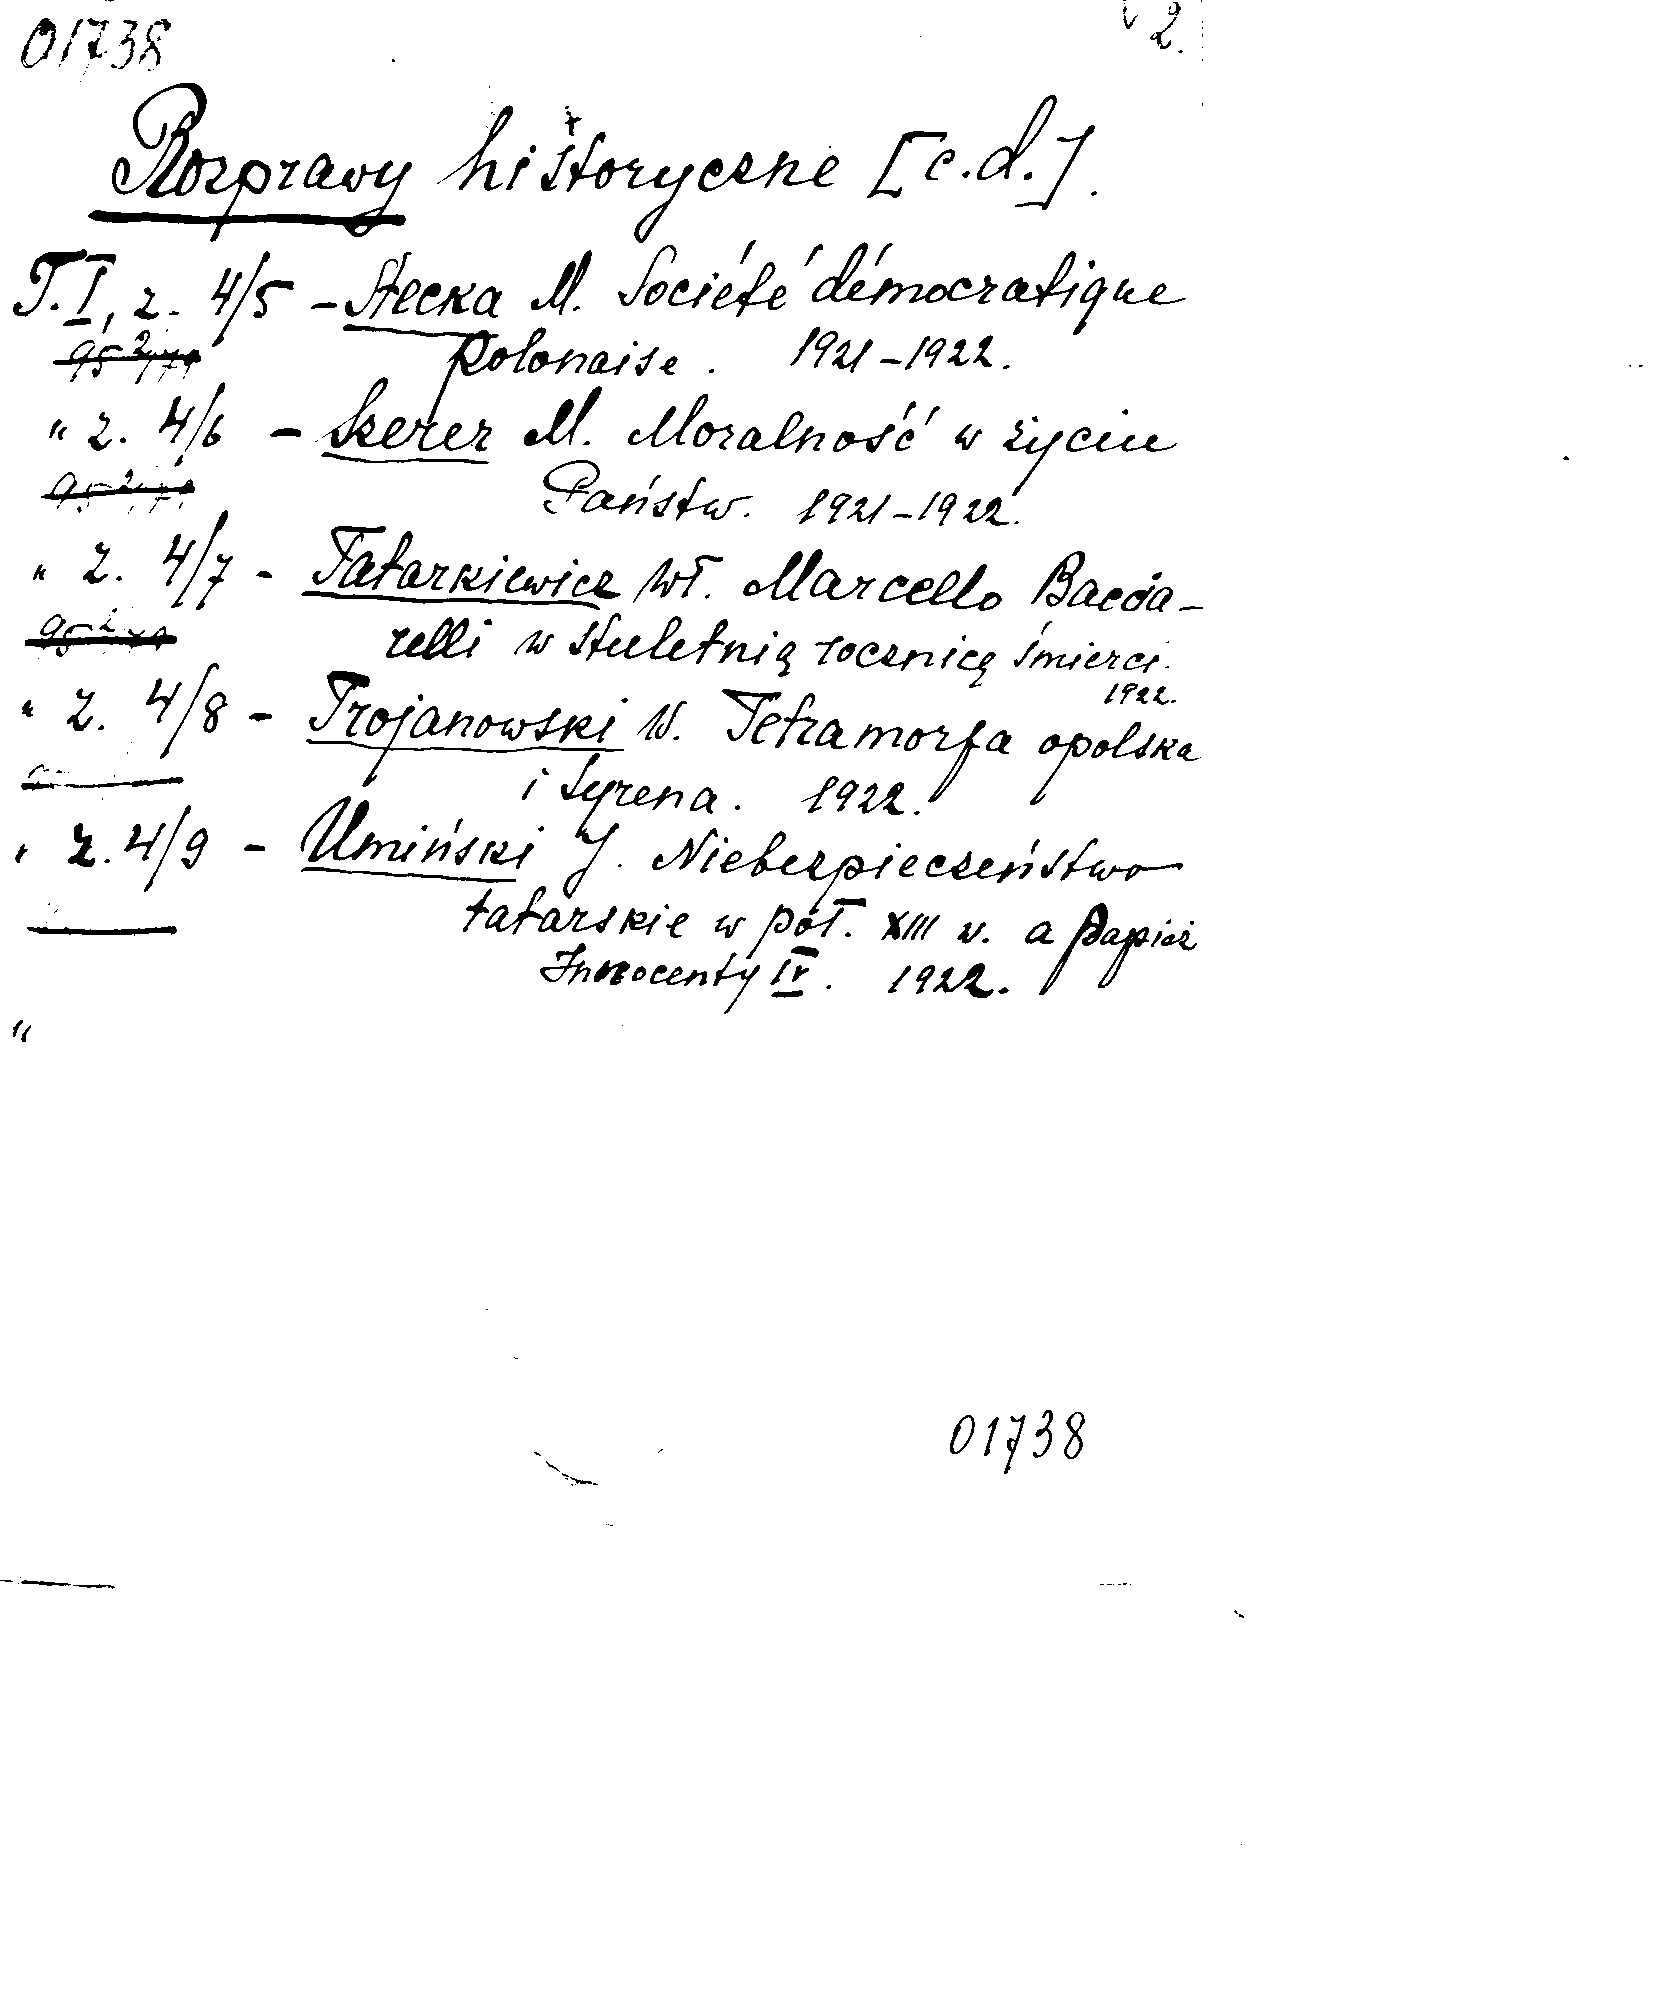 01738
2.
Rozprawy historyczne [c.d.].
T. I, z. 4/5 - Stecka M. Société démocratique
Polonaise. 1921-1922.
" z. 4/6 - Szerer M. Moralność w życiu
Państw. 1921-1922.
" z. 4/7 - Tatarkiewicz Wł. Marcello Baccia-
relli w stuletnią rocznicę śmierci.
1922.
" z. 4/8 - Trojanowski W. Tetramorfa opolska
i Syrena. 1922.
" z. 4/9 - Umiński J. Niebezpieczeństwo
tatarskie w poł. XIII w. a Papież
Innocenty IV. 1922.
"
01738